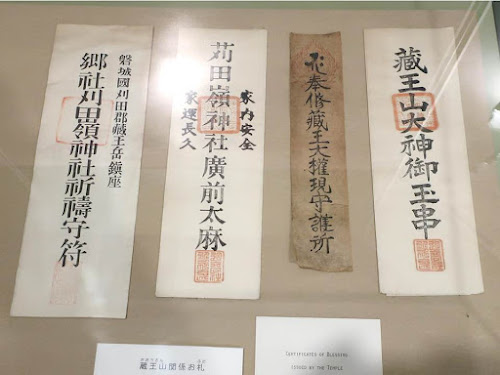 藏王山大神御玉串
奉修藏王大權現守護所
家内安全
苅田嶺神社廣前太麻
家運長久
磐城國刈田郡藏王岳鎮座
郷社刈田嶺神社祈禱守符
蔵王山関係お札
CERTIFICATES OF BLESSING
ISSUED BY THE TEMPLE